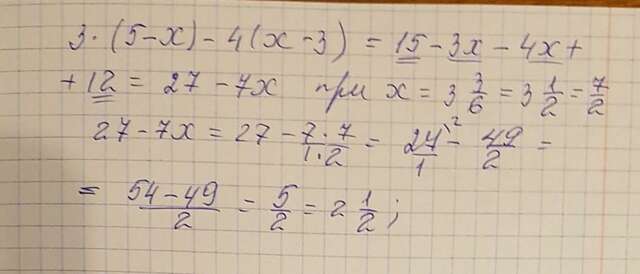 3·(5-x)-4(x-3) = 15-3x-4x+
+12 = 27-7x при x = 3 3/6 = 3 1/2 = 7/2
27-7x = 27 - 7·7/1·2 = 27\2/1 - 49/2 =
= 54-49/2 = 5/2 = 2 1/2;